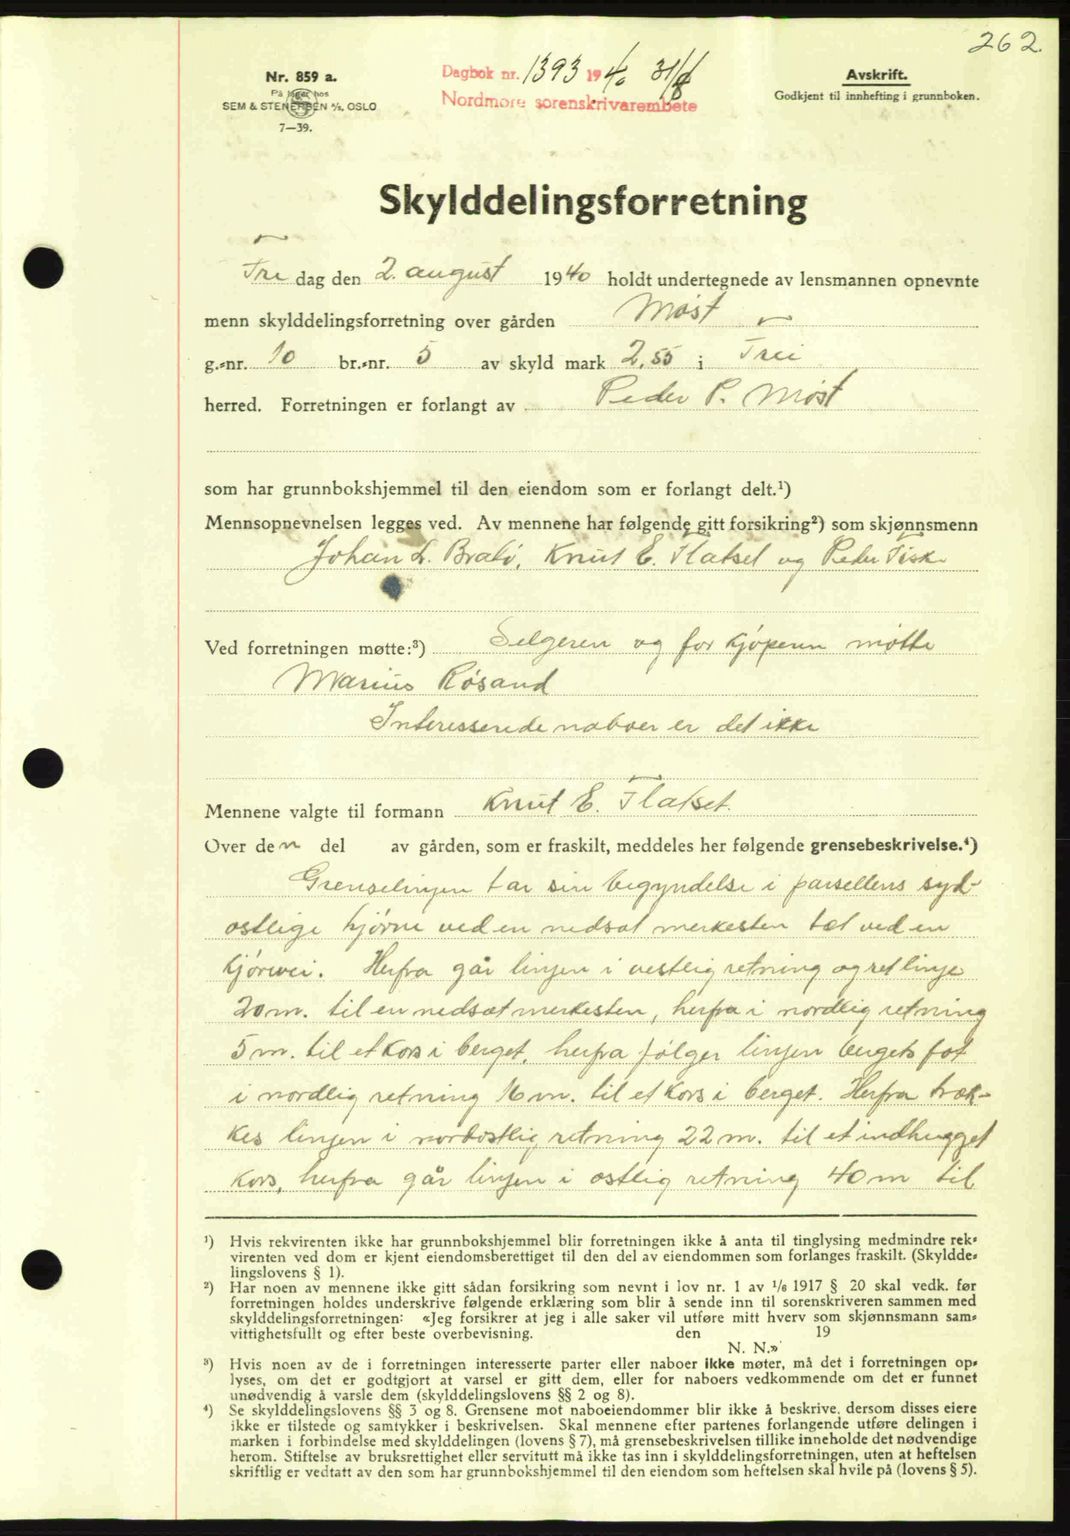 262.
Nr. 859 a.
På lager hos
SEM & STENERSEN A/S, OSLO
7—39.
Dagbok nr. 1393 1940 31/8
Nordmøre sorenskrivarembete
Avskrift.
Godkjent til innhefting i grunnboken.
Skylddelingsforretning
Fre dag den 2. august 1940 holdt undertegnede av lensmannen opnevnte
menn skylddelingsforretning over gården Møst
g.-nr. 10 br.-nr. 5 av skyld mark 2,55 i Frei
herred. Forretningen er forlangt av Peder P. Møst
som har grunnbokshjemmel til den eiendom som er forlangt delt.¹)
Mennsopnevnelsen legges ved. Av mennene har følgende gitt forsikring²) som skjønnsmenn
Johan L. Bratø, Knut E. Flatset og Peder Fiske
Ved forretningen møtte:³) Selgeren og for kjøperen møtte
Marius Røsand
Interesserede naboer er det ikke
Mennene valgte til formann Knut E. Flatset.
Over den del av gården, som er fraskilt, meddeles her følgende grensebeskrivelse.⁴)
Grenselinjen tar sin begyndelse i parsellens syd-
østlige hjørne ved en nedsat merkesten tæt ved en
kjørvei. Herfra går linjen i vestlig retning og ret linje
20 m. til en nedsat merkesten, herfra i nordlig retning
5 m. til et kors i berget, herfra følger linjen bergets fot
i nordlig retning 16 m. til et kors i berget. Herfra træk-
kes linjen i nordostlig retning 22 m. til et indhugget
kors, herfra går linjen i østlig retning 40 m til
¹) Hvis rekvirenten ikke har grunnbokshjemmel blir forretningen ikke å anta til tinglysing medmindre rek-
virenten ved dom er kjent eiendomsberettiget til den del av eiendommen som forlanges fraskilt. (Skyldde-
lingslovens § 1).
²) Har noen av mennene ikke gitt sådan forsikring som nevnt i lov nr. 1 av 1/6 1917 § 20 skal vedk. før
forretningen holdes underskrive følgende erklæring som blir å sende inn til sorenskriveren sammen med
skylddelingsforretningen: «Jeg forsikrer at jeg i alle saker vil utføre mitt hverv som skjønnsmann sam-
vittighetsfullt og efter beste overbevisning. den 19
N. N.»
³) Hvis noen av de i forretningen interesserte parter eller naboer ikke møter, må det i forretningen op-
lyses, om det er godtgjort at varsel er gitt dem, eller for naboers vedkommende om det er funnet
unødvendig å varsle dem (skylddelingslovens §§ 2 og 8).
⁴) Se skylddelingslovens §§ 3 og 8. Grensene mot naboeiendommer blir ikke å beskrive, dersom disses eiere
ikke er tilstede og samtykker i beskrivelsen. Skal mennene efter partenes forlangende utføre delingen i
marken i forbindelse med skylddelingen (lovens § 7), må grensebeskrivelsen tillike inneholde det nødvendige
herom. Stiftelse av bruksrettighet eller servitutt må ikke tas inn i skylddelingsforretningen, uten at heftelsen
skriftlig er vedtatt av den som har grunnbokshjemmel til den eiendom som heftelsen skal hvile på (lovens § 5).